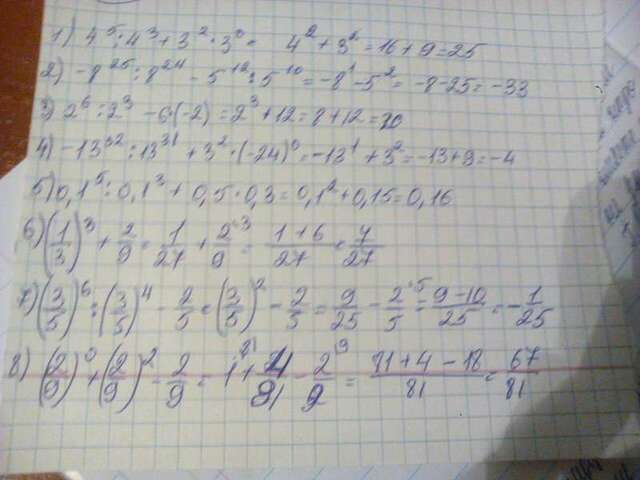 1) 4⁵:4³+3²·3⁰= 4²+3²=16+9=25
2) -8²⁵:8²⁴-5¹²:5¹⁰=-8¹-5²=-8-25=-33
3) 2⁶:2³-6·(-2)=2³+12=8+12=20
4) -13³²:13³¹+3²·(-24)⁰=-13¹+3²=-13+9=-4
5) 0,1⁵:0,1³+0,5·0,3=0,1²+0,15=0,16
6) (1/3)³+2/9=1/27+2/9·3=(1+6)/27=7/27
7) (3/5)⁶:(3/5)⁴-2/5=(3/5)²-2/5=9/25-2/5·5=(9-10)/25=-1/25
8) (2/9)⁰+(2/9)²-2/9=1·81+4/81-2/9·9=(81+4-18)/81=67/81